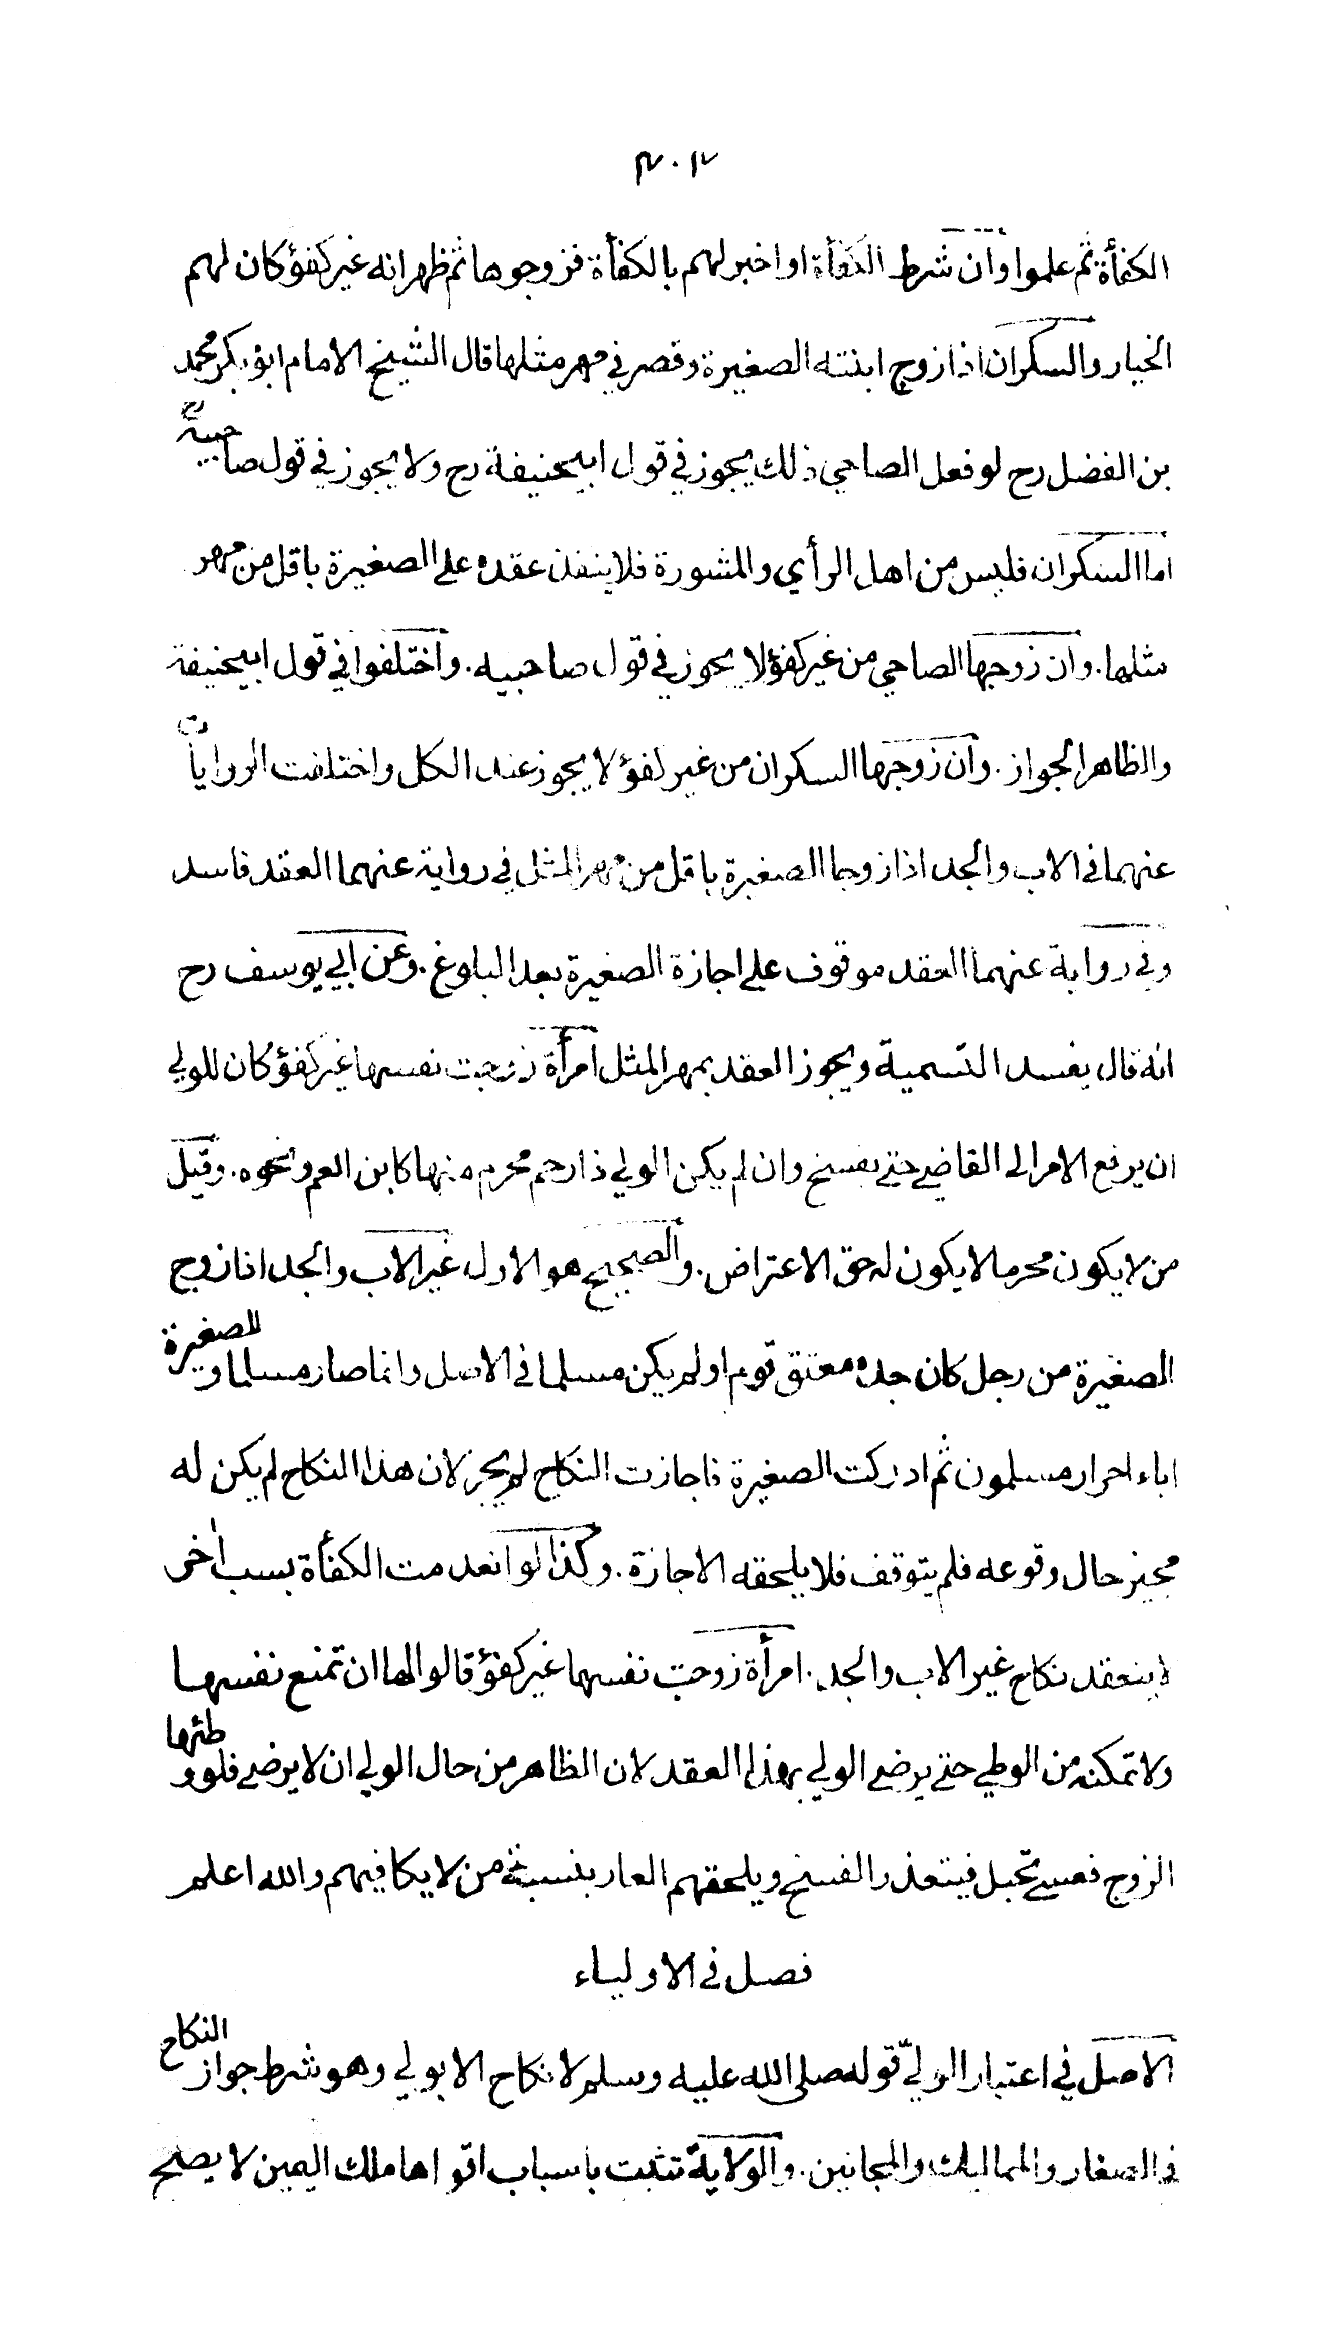 ٣٠٢
الكفأة ثم علموا وان شرط الكفأة او اخبر لهم بالكفأة فزوجوها ثم ظهر انه غير كفؤ كان لهم
الخيار والسكران اذا زوج ابنته الصغيرة وقصر في مهر مثلها قال الشيخ الامام ابو بكر محمد
بن الفضل رح لو فعل الصاحي ذلك يجوز في قول ابيحنيفة رح ولا يجوز في قول صاحبيه رح
اما السكران فليس من اهل الرأي والمشورة فلا ينفذ عقده على الصغيرة باقل من مهر
مثلها. وان زوجها الصاحي من غير كفؤ لا يجوز في قول صاحبيه. واختلفوا في قول ابيحنيفة
والظاهر الجواز. وان زوجها السكران من غير كفؤ لا يجوز عند الكل واختلفت الروايات
عنهما في الاب والجد اذا زوجا الصغيرة باقل من مهر المثل في رواية عنهما العقد فاسد
وفي رواية عنهما العقد موقوف على اجازة الصغيرة بعد البلوغ. وعن ابي يوسف رح
انه قال يفسد التسمية ويجوز العقد بمهر المثل امرأة زوجت نفسها غير كفؤ كان للولي
ان يرفع الامر الى القاضي حتى يفسخ وان لم يكن الولي ذا رحم محرم منها كابن العم ونحوه. وقيل
من لا يكون محرما لا يكون له حق الاعتراض. والصحيح هو الاول غير الاب والجد اذا زوج
الصغيرة من رجل كان جده معتق قوم او لم يكن مسلما في الاصل وانما صار مسلما وللصغيرة
اباء احرار مسلمون ثم ادركت الصغيرة فاجازت النكاح لم يجز لان هذا النكاح لم يكن له
مجيز حال وقوعه فلم يتوقف فلا يلحقه الاجازة. وكذا لو انعدمت الكفأة بسبب اخر
لا ينعقد نكاح غير الاب والجد. امرأة زوجت نفسها غير كفؤ قالوا لها ان تمنع نفسها
ولا تمكنه من الوطي حتى يرضى الولي بهذا العقد لان الظاهر من حال الولي ان لا يرضى فلو وطئها
الزوج فعسى تحبل فيتعذر الفسخ ويلحقهم العار بنسبة من لا يكافيهم والله اعلم
فصل في الاولياء
الاصل في اعتبار الولي قوله صلى الله عليه وسلم لا نكاح الا بولي وهو شرط جواز النكاح
في الصغار والمماليك والمجانين. والولاية تثبت باسباب اقواها ملك اليمين لا يصلح